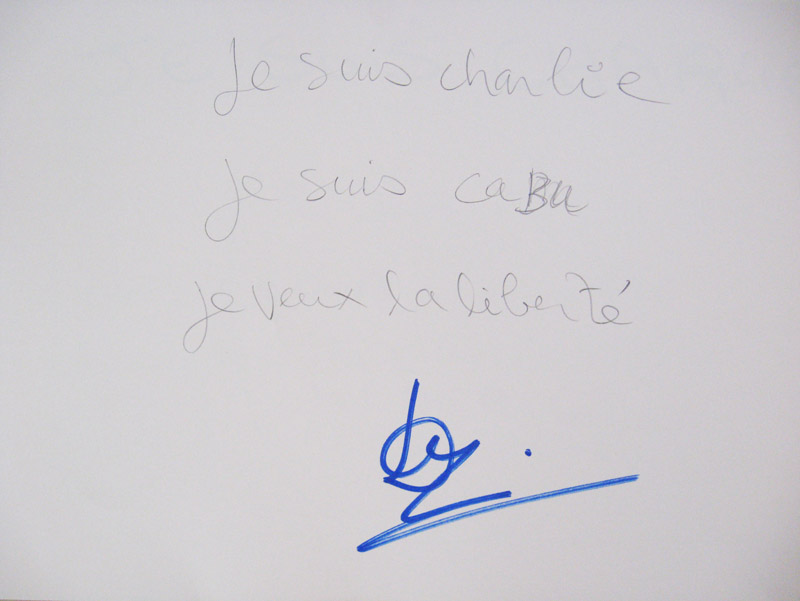 Je suis charlie
Je suis caBu
je veux la liberté